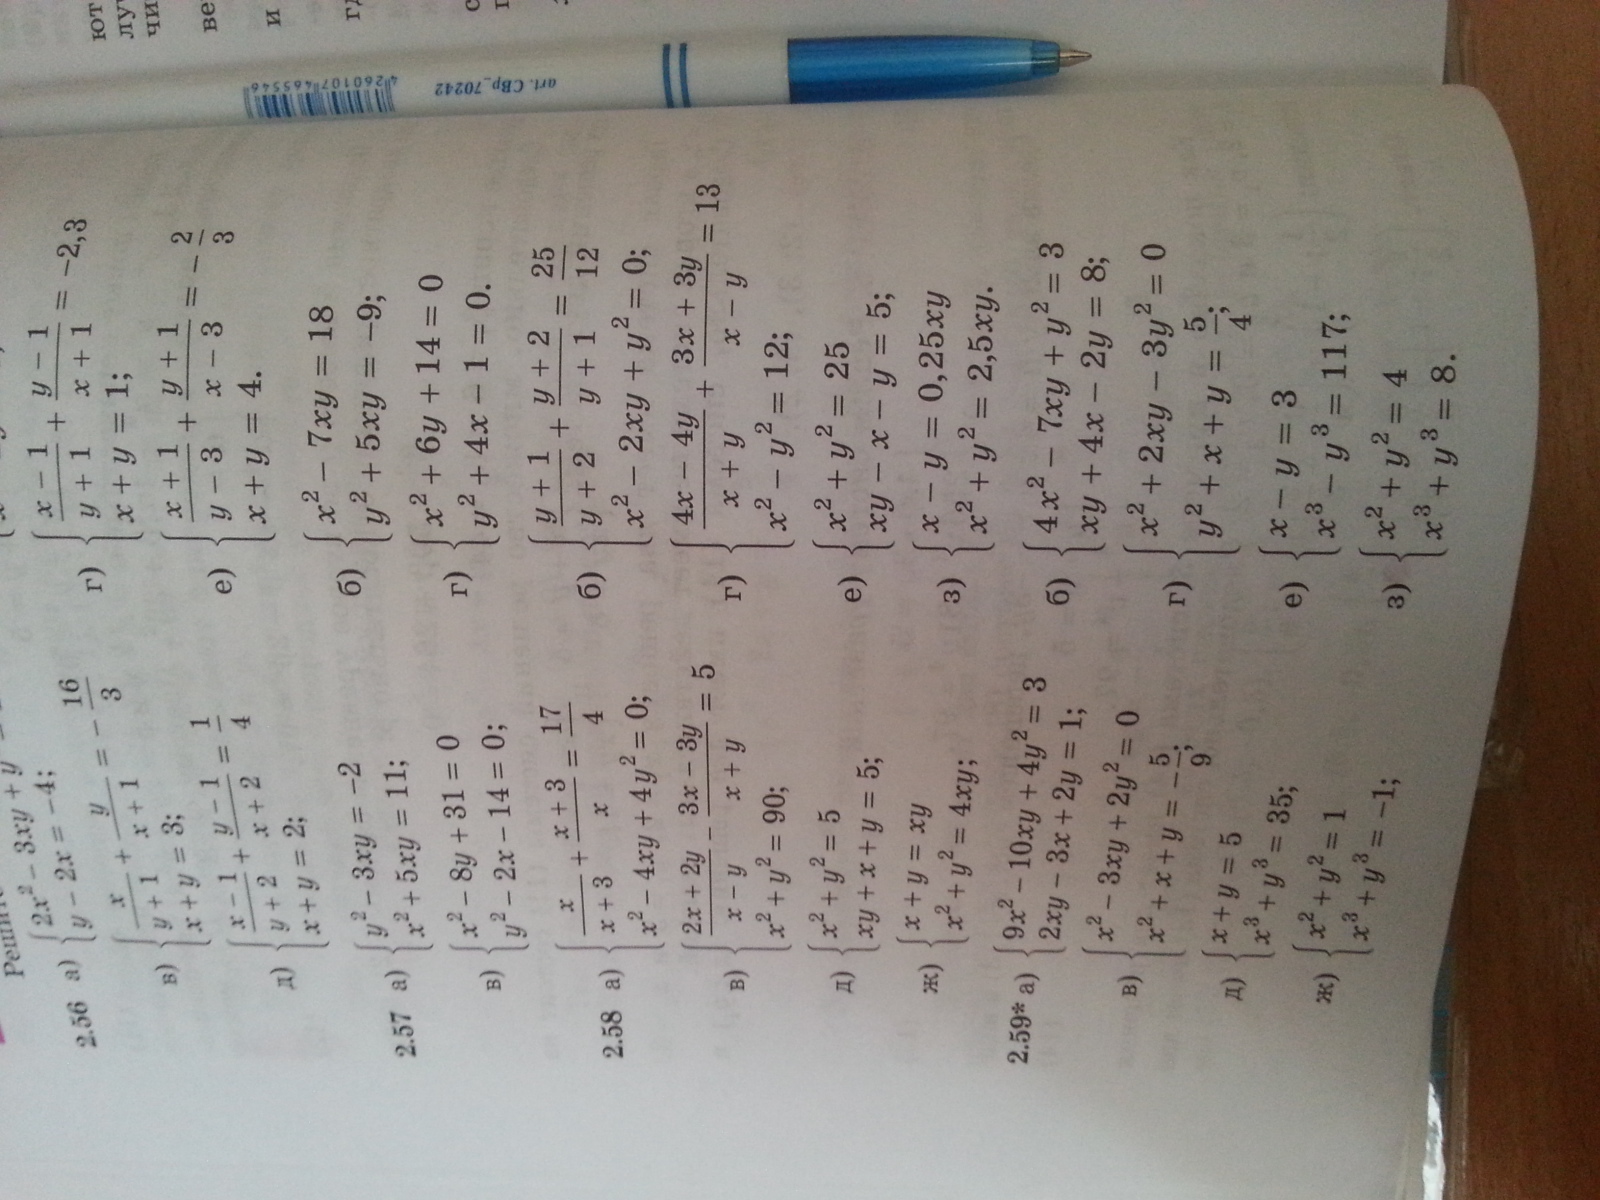 Решите
2.56 а) { 2x² − 3xy + y
y − 2x = −4;
в) { x/(y + 1) + y/(x + 1) = −16/3
x + y = 3;
г) { (x − 1)/(y + 1) + (y − 1)/(x + 1) = −2,3
x + y = 1;
д) { (x − 1)/(y + 2) + (y − 1)/(x + 2) = 1/4
x + y = 2;
е) { (x + 1)/(y − 3) + (y + 1)/(x − 3) = −2/3
x + y = 4.
2.57 а) { y² − 3xy = −2
x² + 5xy = 11;
б) { x² − 7xy = 18
y² + 5xy = −9;
в) { x² − 8y + 31 = 0
y² − 2x − 14 = 0;
г) { x² + 6y + 14 = 0
y² + 4x − 1 = 0.
2.58 а) { x/(x + 3) + (x + 3)/x = 17/4
x² − 4xy + 4y² = 0;
б) { (y + 1)/(y + 2) + (y + 2)/(y + 1) = 25/12
x² − 2xy + y² = 0;
в) { (2x + 2y)/(x − y) − (3x − 3y)/(x + y) = 5
x² + y² = 90;
г) { (4x − 4y)/(x + y) + (3x + 3y)/(x − y) = 13
x² − y² = 12;
д) { x² + y² = 5
xy + x + y = 5;
е) { x² + y² = 25
xy − x − y = 5;
ж) { x + y = xy
x² + y² = 4xy;
з) { x − y = 0,25xy
x² + y² = 2,5xy.
2.59* а) { 9x² − 10xy + 4y² = 3
2xy − 3x + 2y = 1;
б) { 4x² − 7xy + y² = 3
xy + 4x − 2y = 8;
в) { x² − 3xy + 2y² = 0
x² + x + y = −5/9;
г) { x² + 2xy − 3y² = 0
y² + x + y = 5/4;
д) { x + y = 5
x³ + y³ = 35;
е) { x − y = 3
x³ − y³ = 117;
ж) { x² + y² = 1
x³ + y³ = −1;
з) { x² + y² = 4
x³ + y³ = 8.
4260107465546
art. CBp_70242
ют
лу
чи
ве
и